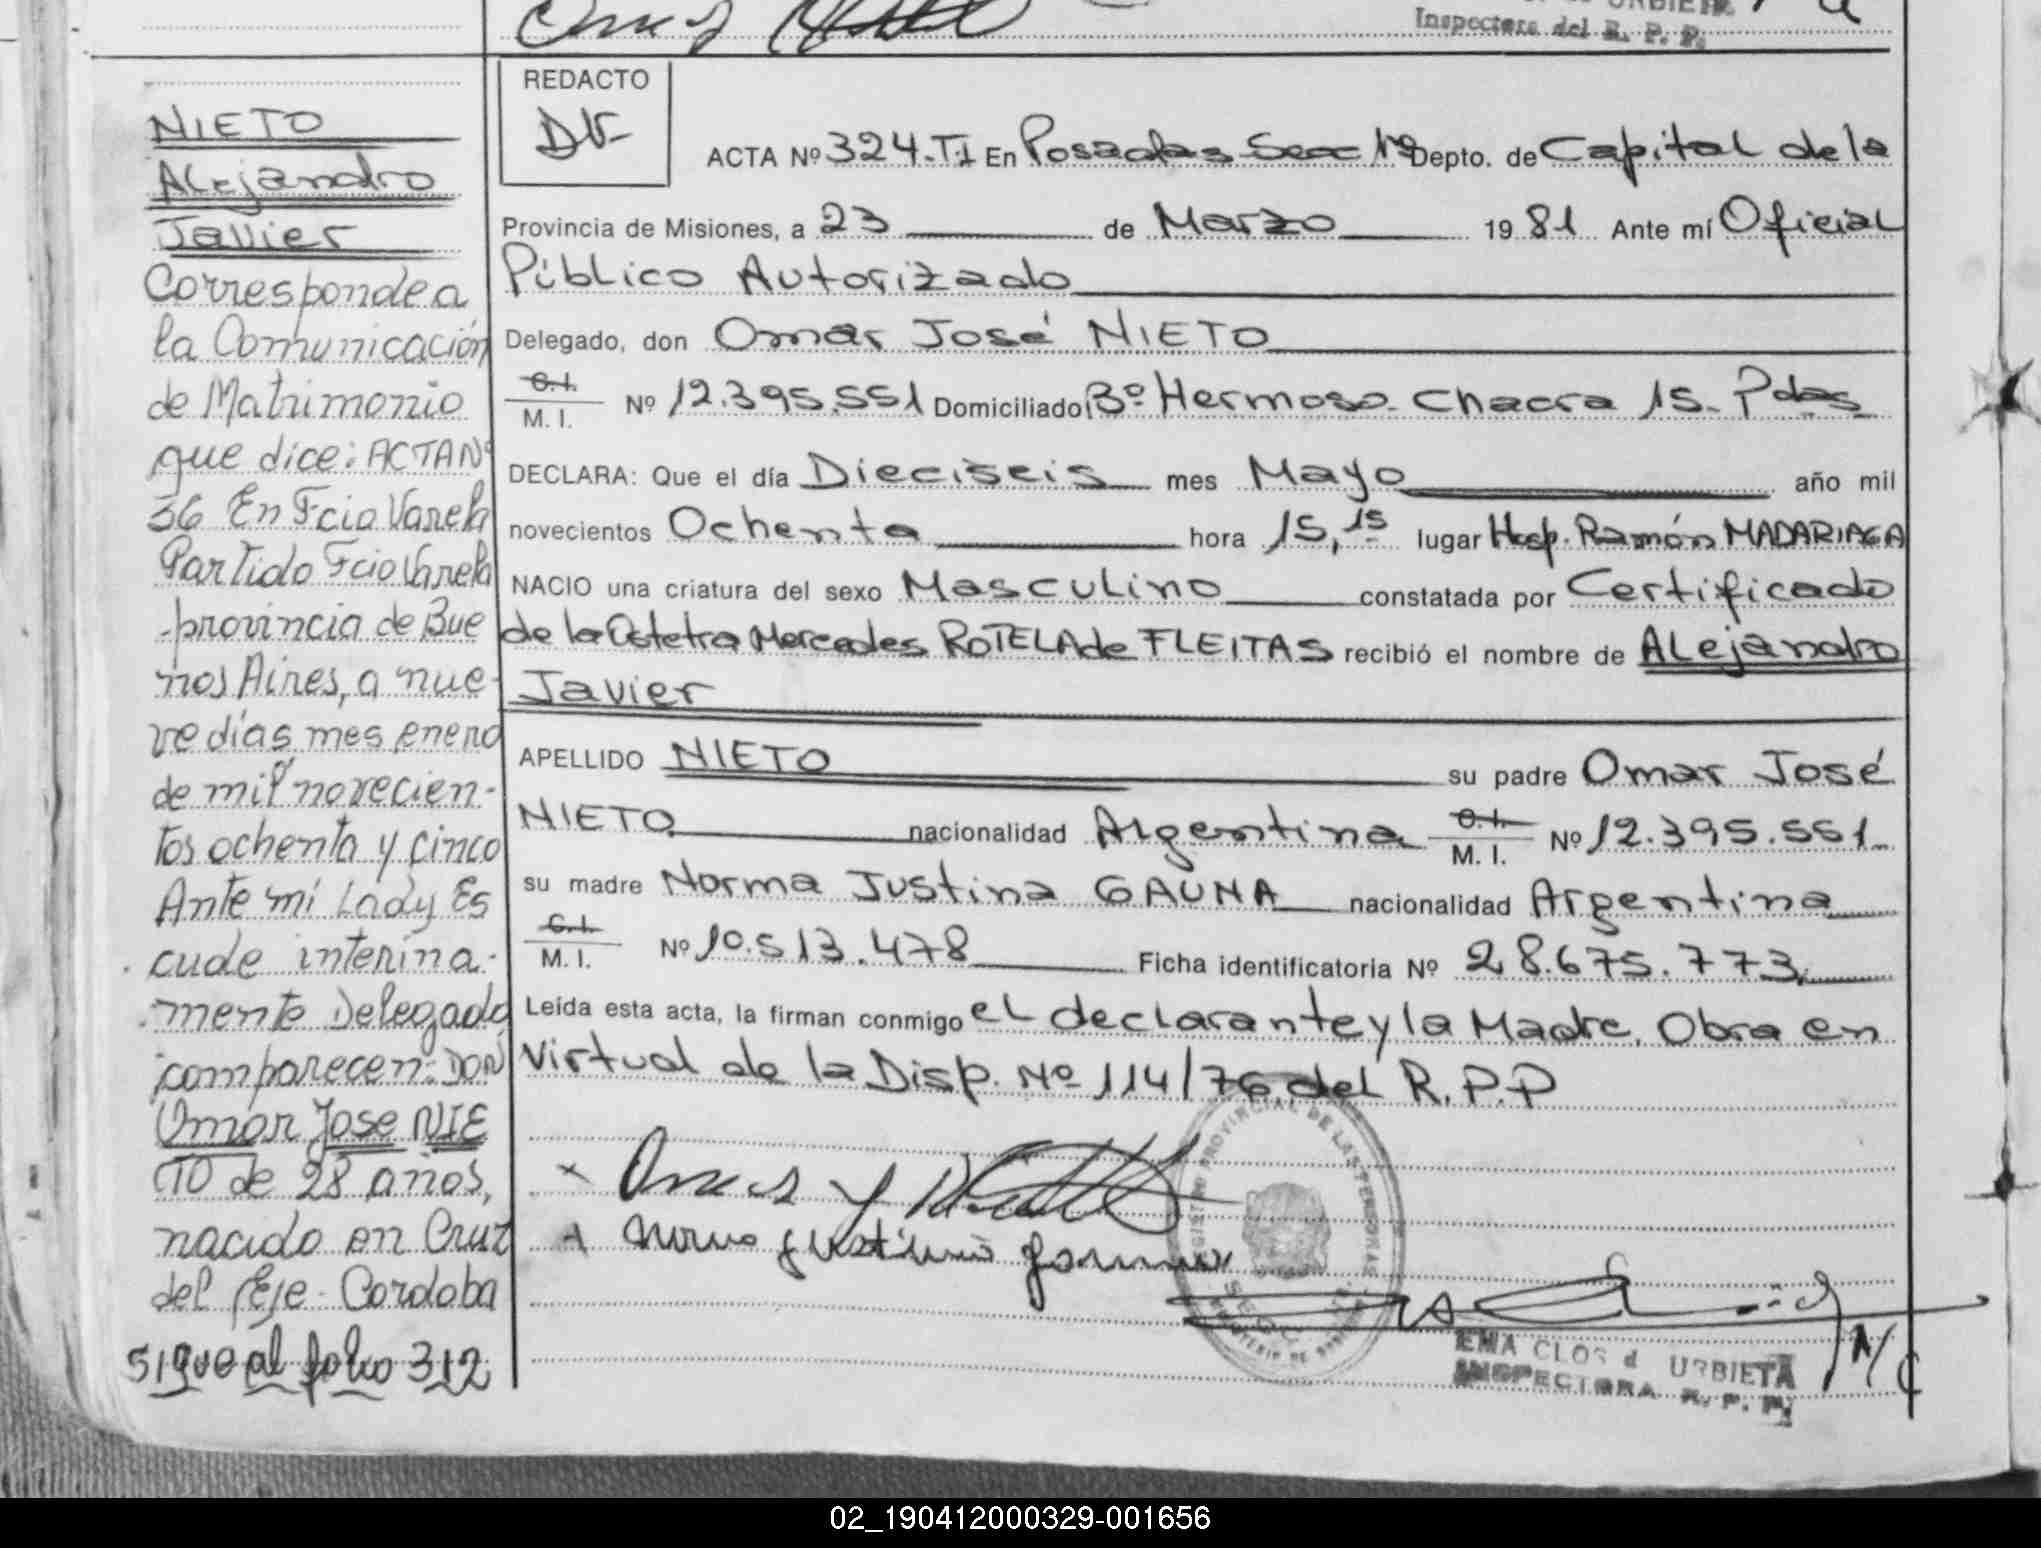 Inspectora del R. P. P.
NIETO
Alejandro
Javier
Corresponde a
la Comunicación
de Matrimonio
que dice: ACTA Nº
36 En Fcio Varela
Partido Fcio Varela
provincia de Bue
nos Aires, a nue-
ve días mes enero
de mil novecien-
tos ochenta y cinco
Ante mí Lady Es
cude interina-
mente Delegado
comparecen: DON
Omar Jose NIE
TO de 28 años,
nacido en Cruz
del Eje - Cordoba
sigue al folio 312
REDACTO
ACTA Nº 324.T.I En Posadas Secc 1ª Depto. de Capital de la
Provincia de Misiones, a 23 de Marzo 1981 Ante mí Oficial
Público Autorizado
Delegado, don Omar José NIETO
C.I.
M. I. Nº 12.395.551 Domiciliado Bº Hermoso- Chacra 15- Pdas
DECLARA: Que el día Dieciseis mes Mayo año mil
novecientos Ochenta hora 15,15 lugar Hosp. Ramón MADARIAGA
NACIO una criatura del sexo Masculino constatada por Certificado
de la Ostetra Mercedes ROTELA de FLEITAS recibió el nombre de ALejandro
Javier
APELLIDO NIETO su padre Omar José
NIETO nacionalidad Argentina C.I. M. I. Nº 12.395.551
su madre Norma Justina GAUNA nacionalidad Argentina
C.I.
M. I. Nº 10.513.478 Ficha identificatoria Nº 28.675.773
Leída esta acta, la firman conmigo el declarante y la Madre. Obra en
virtual de la Disp. Nº 114/76 del R.P.P
EMA CLOS d URBIETA
INSPECTORA R. P. P.
02_190412000329-001656